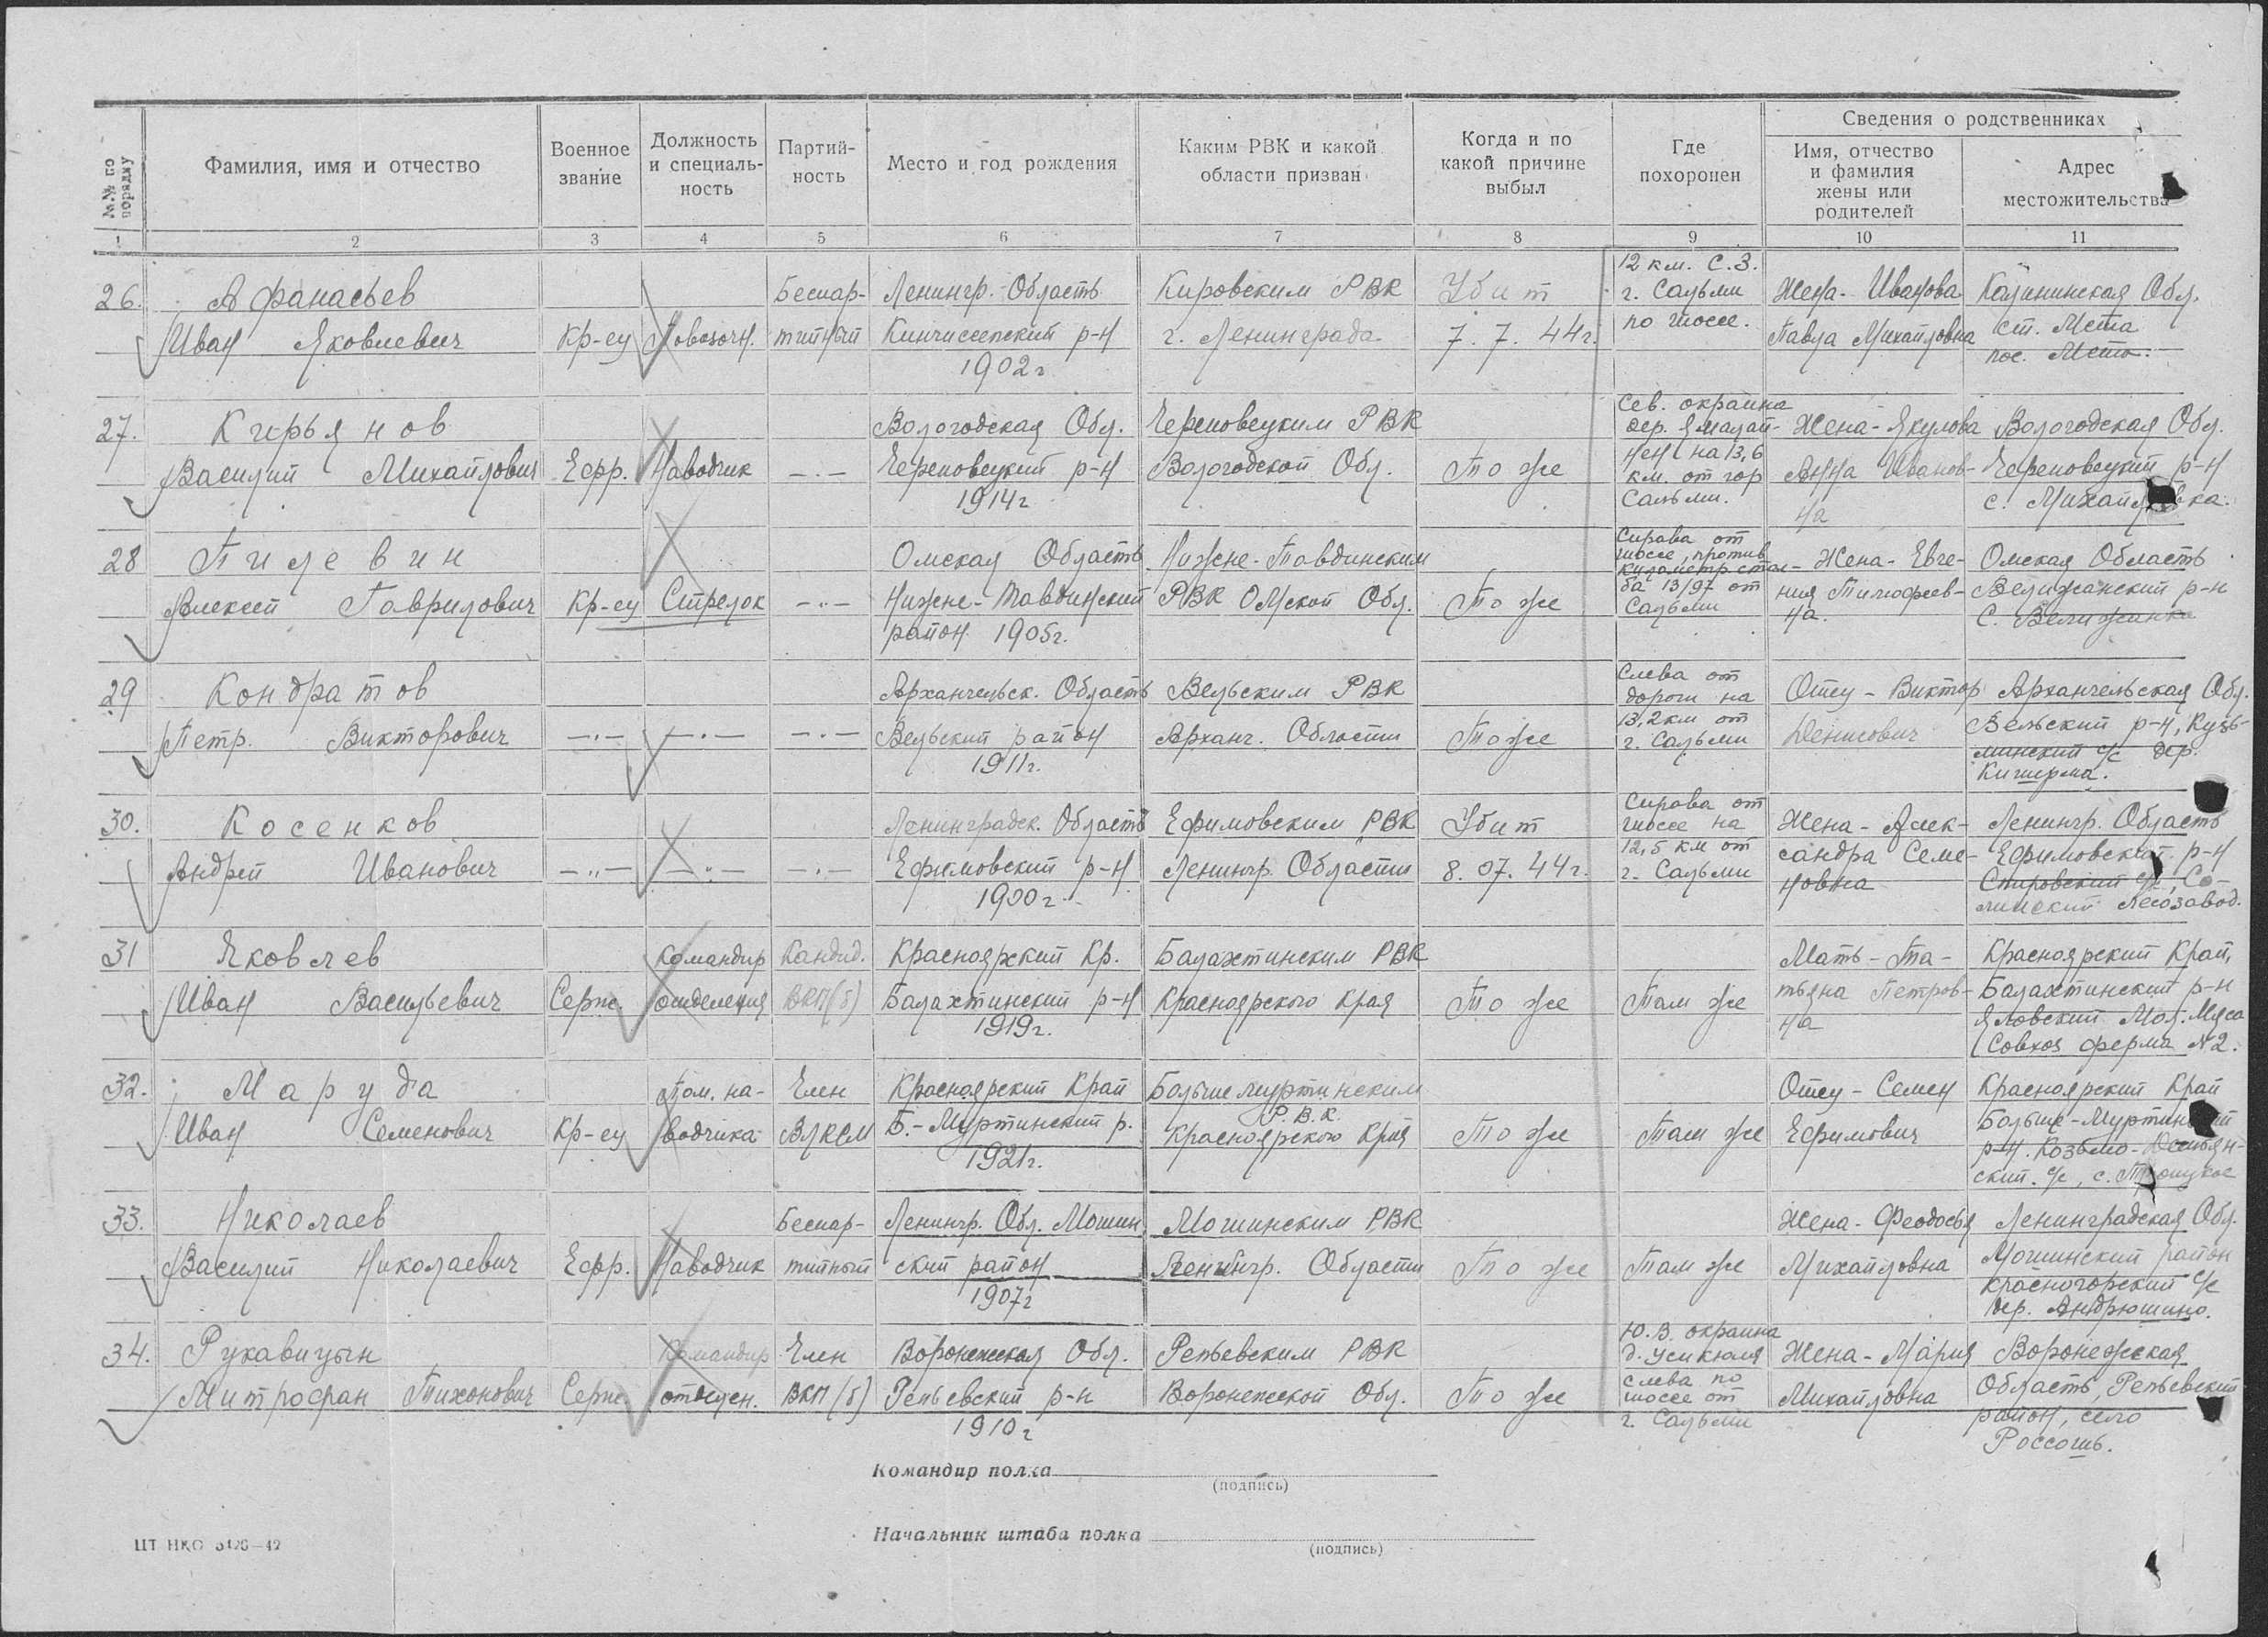 №№ по порядку
Фамилия, имя и отчество
Военное звание
Должность и специаль-ность
Партий-ность
Место и год рождения
Каким РВК и какой области призван
Когда и по какой причине выбыл
Где похоронен
Сведения о родственниках
Имя, отчество и фамилия жены или родителей
Адрес местожительства
1 2 3 4 5 6 7 8 9 10 11
26. Афанасьев
Иван Яковлевич
Кр-ец
Повозочн.
Беспар-
тийный
Ленингр. Область
Кингисепский р-н
1902 г
Кировским РВК
г. Ленинграда
Убит
7. 7. 44 г.
12 км. С.З.
г. Сальми
по шоссе.
Жена - Иванова
Павла Михайловна
Калининская Обл.
ст. Мста
пос. Мста.
27. Кирьянов
Василий Михайлович
Ефр.
Наводчик
—·—
Вологодская Обл.
Череповецкий р-н
1914 г
Череповецким РВК
Вологодской Обл.
То же
Сев. окраина
дер.
км. от гор
Сальми.
Жена - Якулова
Анна Иванов-
на
Вологодская Обл.
Череповецкий р-н
с. Михайловка.
28 Пилевин
Алексей Гаврилович
Кр-ец
Стрелок
—··—
Омская Область
Нижне-Тавдинский
район 1905 г.
Нижне-Тавдинским
РВК Омской Обл.
То же
Справа от
шоссе, против
километр. стол-
ба 13/97 от
Сальми
Жена - Евге-
ния Тимофеев-
на.
Омская Область
Велижанский р-н
с. Велижанка
29 Кондратов
Петр. Викторович
—·—
—·—
—·—
Архангельск. Область
Вельский район
1911 г.
Вельским РВК
Арханг. Области
То же
Слева от
дороги на
13,2 км от
г. Сальми
Отец - Виктор
Денисович
Архангельская Обл.
Вельский р-н, Кузь-
минский с/с дер.
Кишерма.
30. Косенков
Андрей Иванович
—··—
—··—
—·—
Ленинградск. Область
Ефимовский р-н
1900 г.
Ефимовским РВК
Ленингр. Области
Убит
8. 07. 44 г.
Справа от
шоссе на
12,5 км от
г. Сальми
Жена - Алек-
сандра Семе-
новна
Ленингр. Область
Ефимовский р-н
Спировский с/с, Со-
минский Лесозавод.
31 Яковлев
Иван Васильевич
Серж.
Командир
отделения
Кандид.
ВКП(б)
Красноярский Кр.
Балахтинский р-н
1919 г.
Балахтинским РВК
Красноярского Края
То же
Там же
Мать - Та-
тьяна Петров-
на
Красноярский Край,
Балахтинский р-н
Яловский Мол. Мяса
Совхоз ферма №2.
32. Маруда
Иван Семенович
Кр-ец
Пом. на-
водчика
Член
ВЛКСМ
Красноярский Край
Б.-Муртинский р.
1921 г.
Большемуртинским
Р.В.К.
Красноярского Края
То же
Там же
Отец - Семен
Ефимович
Красноярский Край
Больше-Муртинский
р-н. Козьмо-Демьян-
ский. с/с, с. Троицкое
33. Николаев
Василий Николаевич
Ефр.
Наводчик
Беспар-
тийный
Ленингр. Обл. Мошин
ский район
1907 г
Мошинским РВК
Ленингр. Области
То же
Там же
Жена - Феодосья
Михайловна
Ленинградская Обл.
Мошинский район
Красногорский с/с
дер. Андрюшино.
34. Рукавицын
Митрофан Тихонович
Серж.
Командир
отделен.
Член
ВКП(б)
Воронежская Обл.
Репьевский р-н
1910 г
Репьевским РВК
Воронежской Обл.
То же
Ю.В. окраина
д. Усикюля
слева по
шоссе от
г. Сальми
Жена - Мария
Михайловна
Воронежская
Область, Репьевский
район, село
Россошь.
Командир полка
(подпись)
Начальник штаба полка
(подпись)